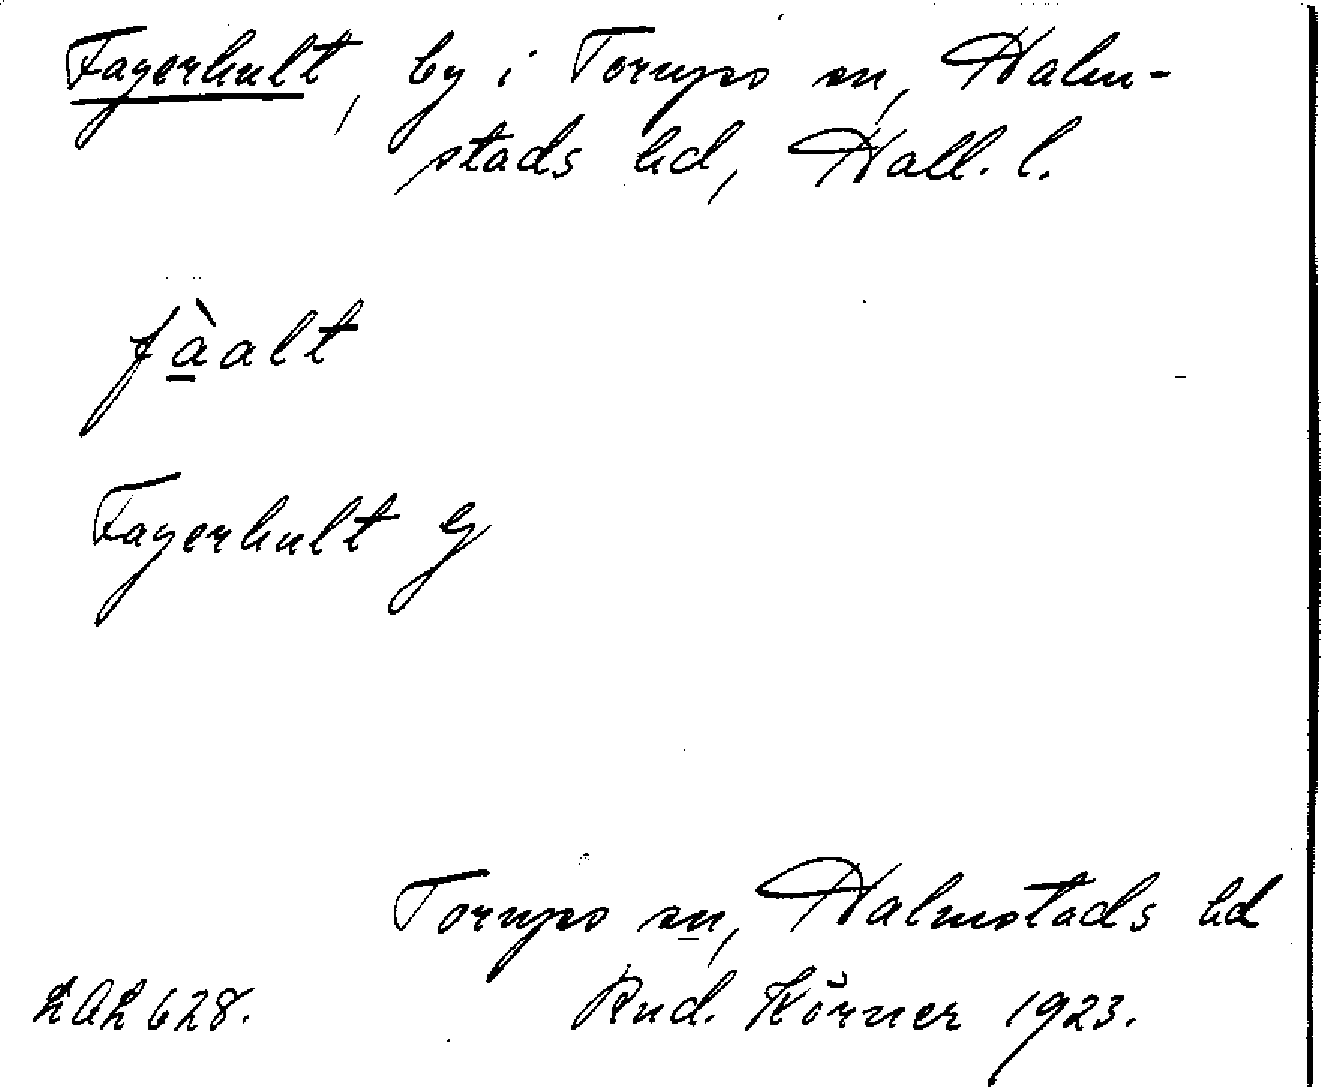 Fagerhult, by i Torups sn, Halm-
stads hd, Hall. l.
fàalt
Fagerhult g
Torups sn, Halmstads hd
LAL 628. Rud. Körner 1923.